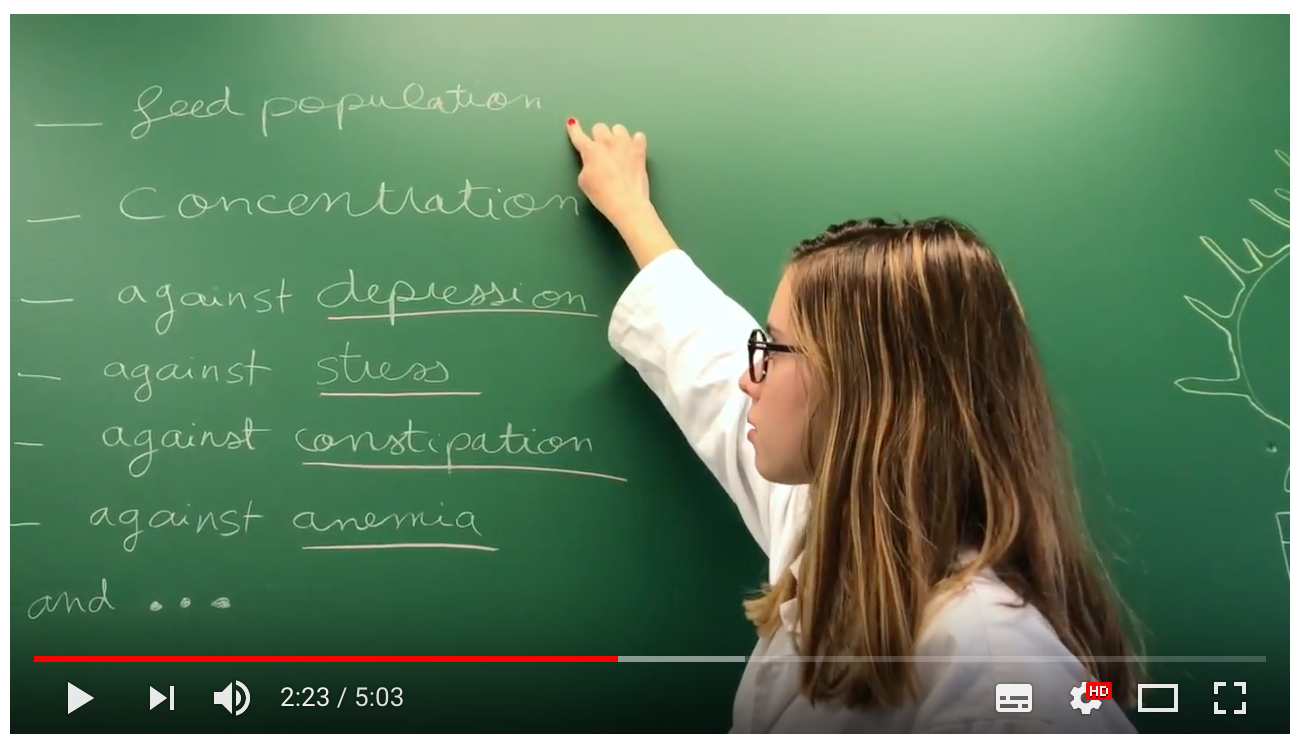 — feed population
— Concentration
— against depression
— against stress
— against constipation
— against anemia
and ...
2:23 / 5:03
HD